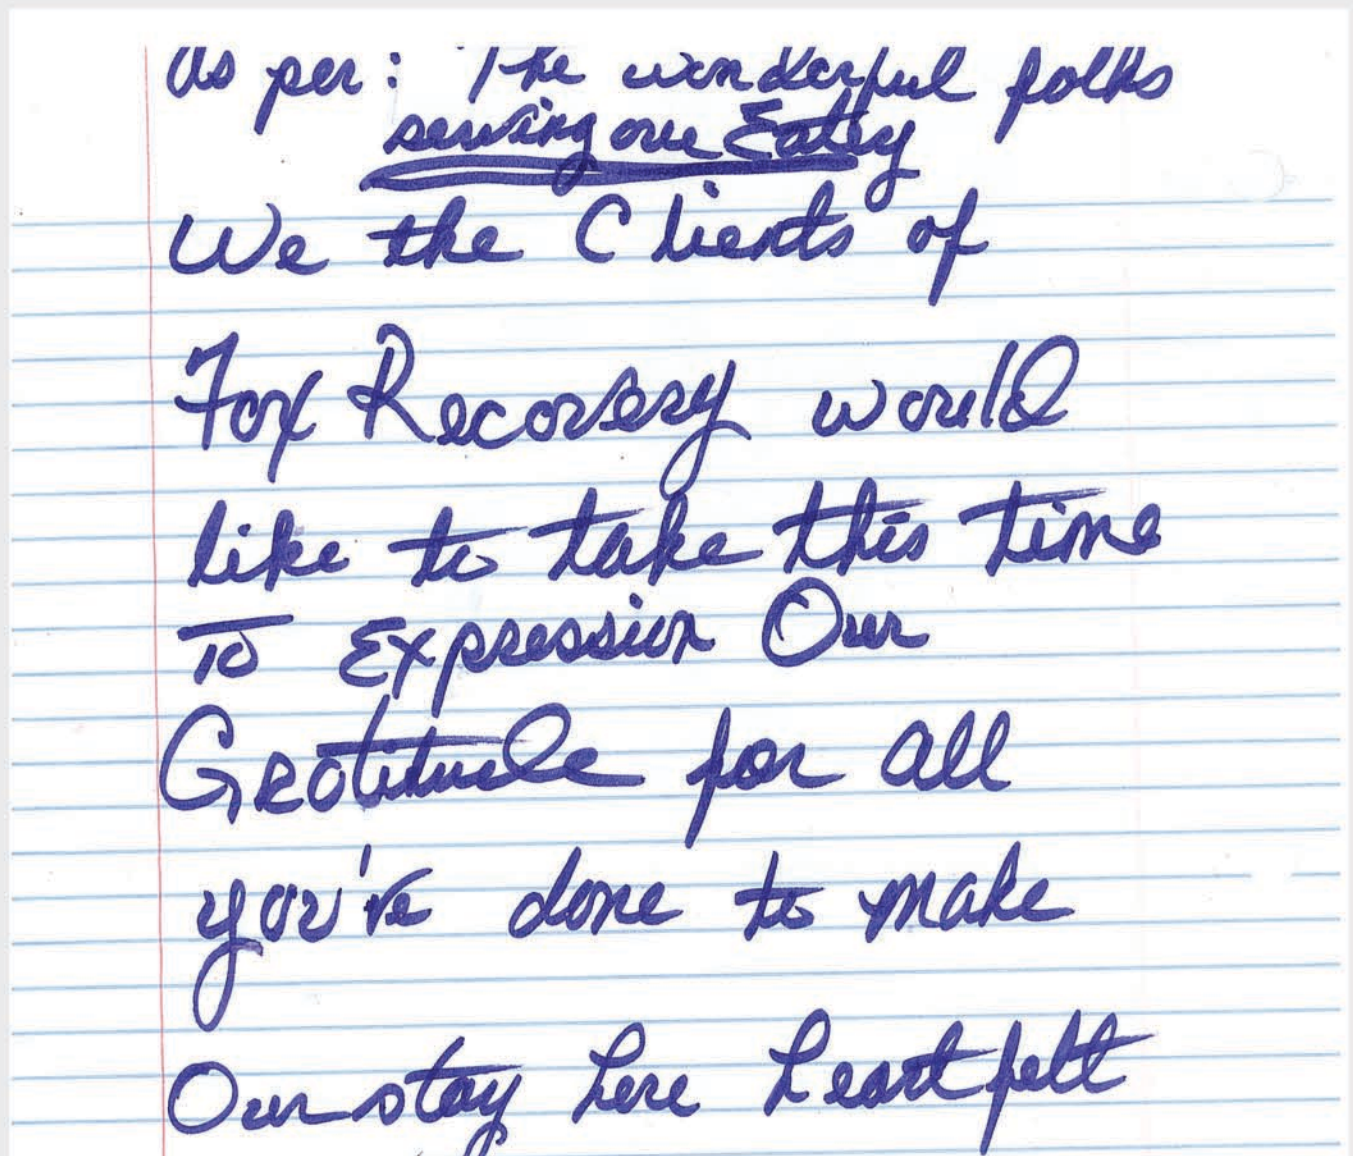 As per: The wonderful folks
serving our Eatey
We the Clients of
Fox Recovery would
like to take this time
To Expression Our
Gratitude for all
you've done to make
Our stay here heartfelt